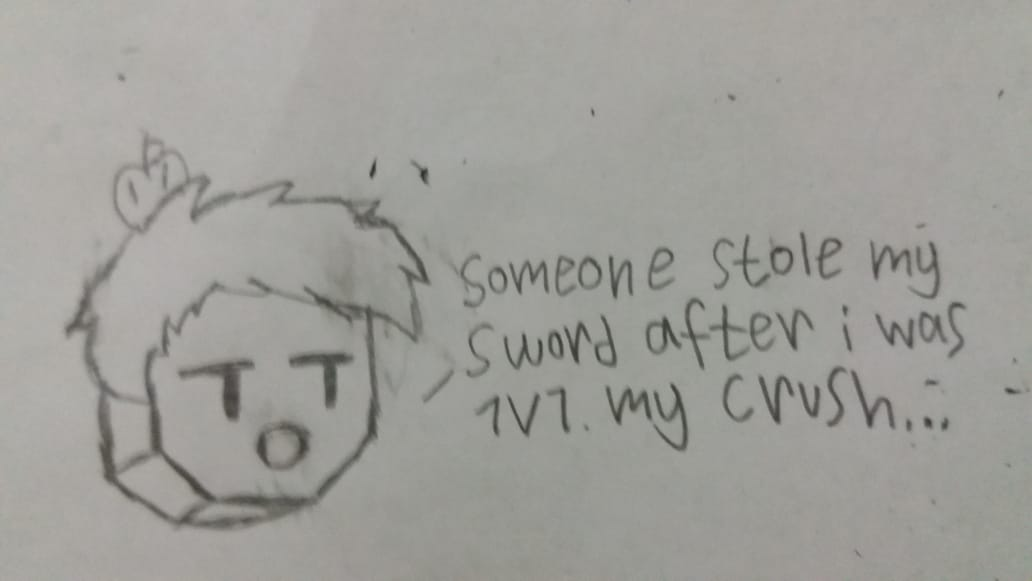 someone stole my
sword after i was
1v1. my crush...